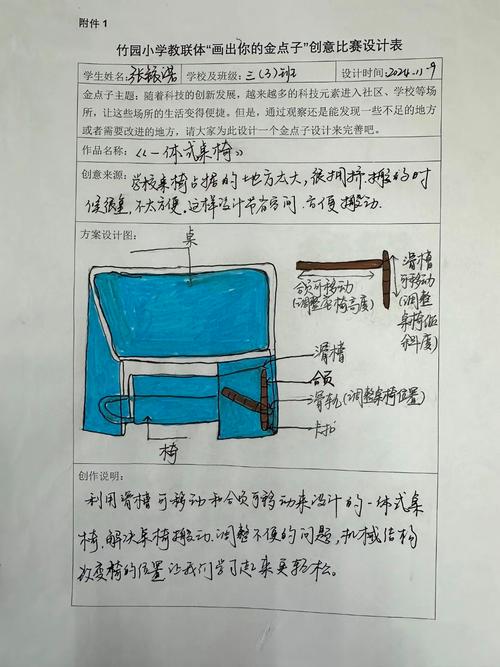 附件1
竹园小学教联体“画出你的金点子”创意比赛设计表
学生姓名: 张 浩 学校及班级: 三(3)班 设计时间: 2024.11.9
金点子主题：随着科技的创新发展，越来越多的科技元素进入社区、学校等场
所，让这些场所的生活变得便捷。但是，通过观察还是能发现一些不足的地方
或者需要改进的地方，请大家为此设计一个金点子设计来完善吧。
作品名称：《一体式桌椅》
创意来源：学校桌椅占据的地方太大，很拥挤.搬的时
候很重，不太方便.这样设计节省空间.方便搬动.
方案设计图：
桌
合页可移动
(调整桌椅高度)
滑槽
可移动
(调整
桌椅倾
斜度)
滑槽
合页
滑轨(调整桌椅位置)
卡扣
椅
创作说明：
利用滑槽可移动和合页可移动来设计的一体式桌
椅.解决桌椅搬动.调整不便的问题，机械结构
改变椅的位置让我们学习起来更轻松。